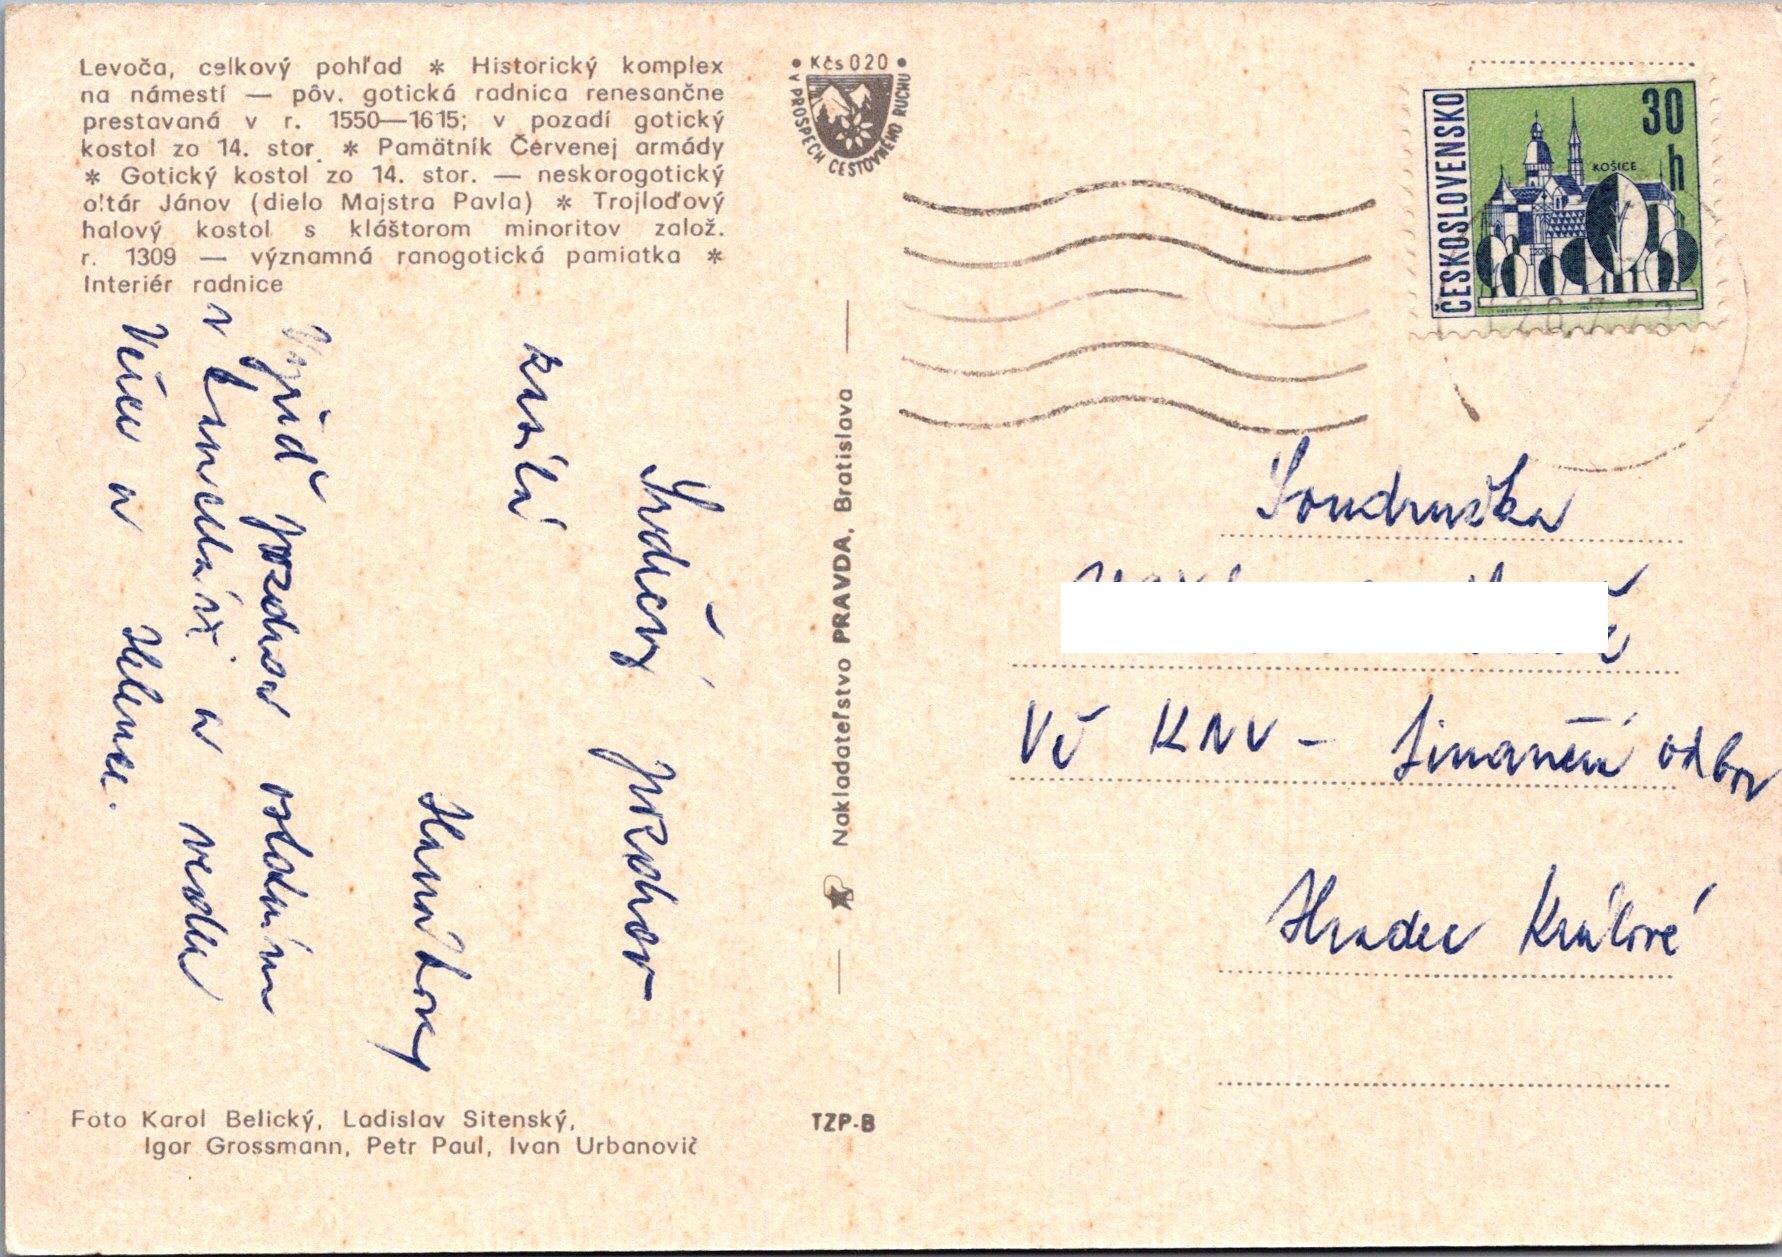 Levoča, celkový pohľad * Historický komplex
na námestí — pôv. gotická radnica renesančne
prestavaná v r. 1550—1615; v pozadí gotický
kostol zo 14. stor. * Pamätník Červenej armády
* Gotický kostol zo 14. stor. — neskorogotický
oltár Jánov (dielo Majstra Pavla) * Trojloďový
halový kostol s kláštorom minoritov založ.
r. 1309 — významná ranogotická pamiatka *
Interiér radnice
Kčs 020
V PROSPECH CESTOVNÉHO RUCHU
ČESKOSLOVENSKO
30
h
KOŠICE
Srdečný pozdrav
zasílá
Vyřiď pozdrav ostatním
v kanceláři a vedle
Věrce a Helence.
Nakladateľstvo PRAVDA, Bratislava
Soudružka
Vč KNV - finanční odbor
Hradec Králové
Foto Karol Belický, Ladislav Sitenský,
Igor Grossmann, Petr Paul, Ivan Urbanovič
TZP-B